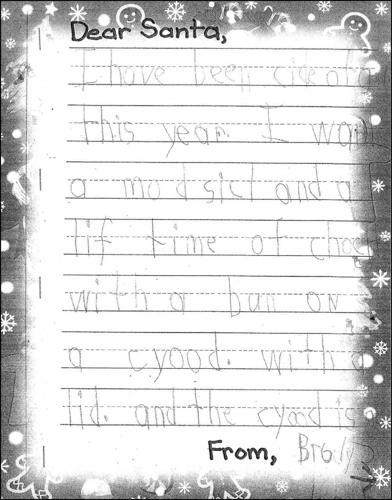 Dear Santa,
I have been
this year. I
a mod sicl and a
lif time of
with a bun on
a cyood. with a
lid. and the cymd is
From,